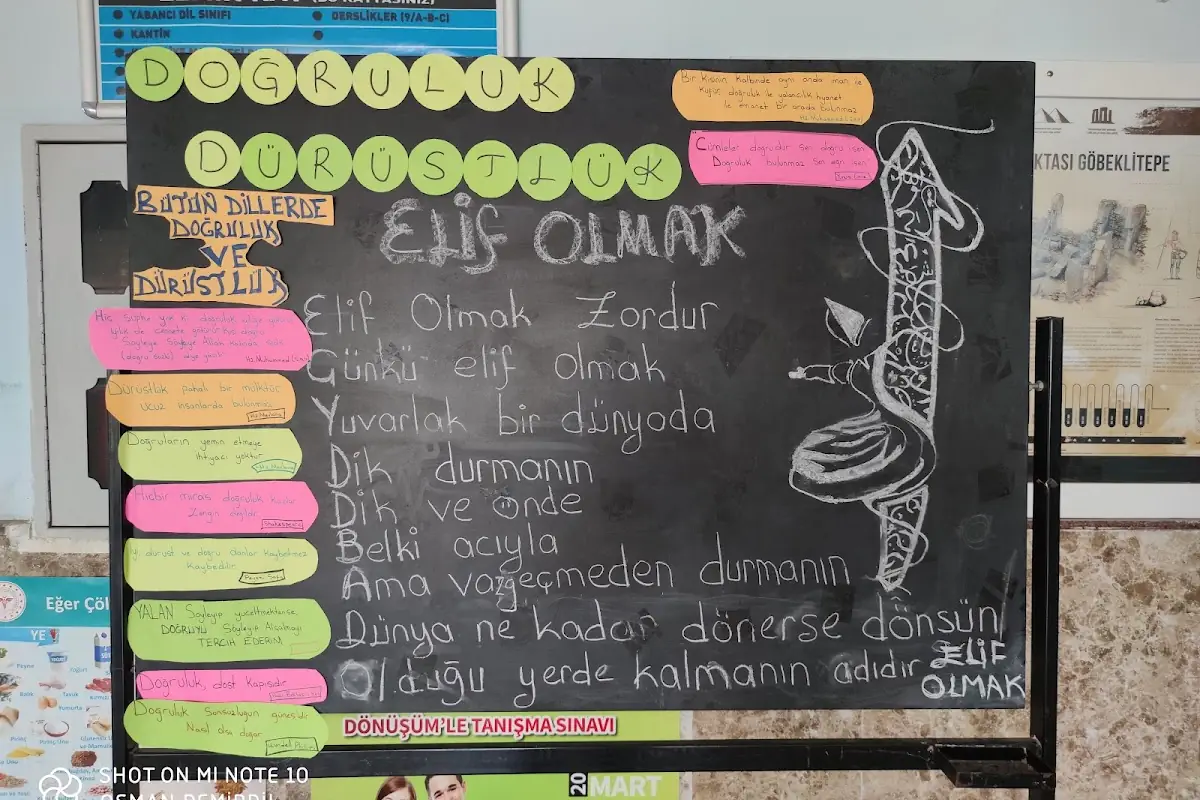 YABANCI DİL SINIFI
DERSLİKLER (9/A-B-C)
KANTİN
DOĞRULUK
DÜRÜSTLÜK
Bir Kişinin Kalbinde aynı anda iman ile
Küfür doğruluk ile yalancılık hıyanet
ile emanet Bir arada bulunmaz
Cümleler doğrudur sen doğru isen
Doğruluk bulunmaz Sen eğri isen
KTASI GÖBEKLİTEPE
BÜTÜN DİLLERDE
DOĞRULUK
VE
DÜRÜSTLÜK
ELİF OLMAK
Elif Olmak Zordur
Günkü elif olmak
Yuvarlak bir dünyoda
Dik durmanın
Dik ve önde
Belki acıyla
Ama vazgeçmeden durmanın
Dünya ne kadar dönerse dönsün
Olduğu yerde kalmanın adıdır ELİF
OLMAK
Hiç şüphe yok ki doğruluk
iyilik de cennete götürür
Söyleye Söyleye Allah katında
(doğru sözlü) diye yazılır Hz Muhammed (s.a.v)
Dürüstlük pahalı bir mülktür
ucuz insanlarda bulunmaz
Doğruların yemin etmeye
ihtiyacı yoktur
Hiçbir miras doğruluk kadar
Zengin değildir
Shakespeare
İyi, dürüst ve doğru olanlar kaybetmez
Kaybedilir
YALAN Söyleyip yücelmektense,
DOĞRUYU Söyleyip Alçalmayı
TERCİH EDERİM
Doğruluk, dost Kapısıdır
Doğruluk Sonsuzluğun güneşidir
Nasıl olsa doğar
Wendell Phillips
Eğer Çöl
YE
Peynir
Yoğurt
Balık
Tavuk
Yumurta
DÖNÜŞÜM'LE TANIŞMA SINAVI
20 MART
SHOT ON MI NOTE 10
OSMAN DEMİRDİL